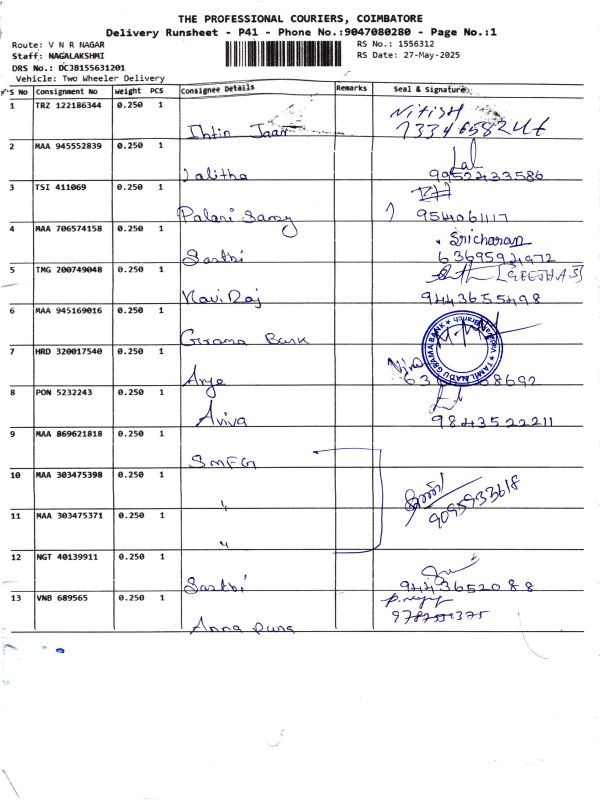 THE PROFESSIONAL COURIERS, COIMBATORE
Delivery Runsheet - P41 - Phone No.:9047080280 - Page No.:1
Route: V N R NAGAR RS No.: 1556312
Staff: NAGALAKSHMI RS Date: 27-May-2025
DRS No.: DCJB155631201
Vehicle: Two Wheeler Delivery
S No Consignment No Weight PCS Consignee Details Remarks Seal & Signature
1 TRZ 122186344 0.250 1 Nitish
Jaan
2 MAA 945552839 0.250 1 Lal
Lalitha 9952433586
3 TSI 411069 0.250 1
Palani Samy 9514061117
4 MAA 706574158 0.250 1 Sricharan
Sakthi 6369594972
5 TMG 200749048 0.250 1 [GEETHA S]
Navi Raj 9443655498
6 MAA 945169016 0.250 1
Grama Bank TAMIL NADU GRAMA BANK
7 HRD 320017540 0.250 1
8692
8 PON 5232243 0.250 1
Aviva 9843522211
9 MAA 869621818 0.250 1
SMFG
10 MAA 303475398 0.250 1
"
9095933618
11 MAA 303475371 0.250 1
"
12 NGT 40139911 0.250 1
Sakthi 9443652088
13 VNB 689565 0.250 1
Anna